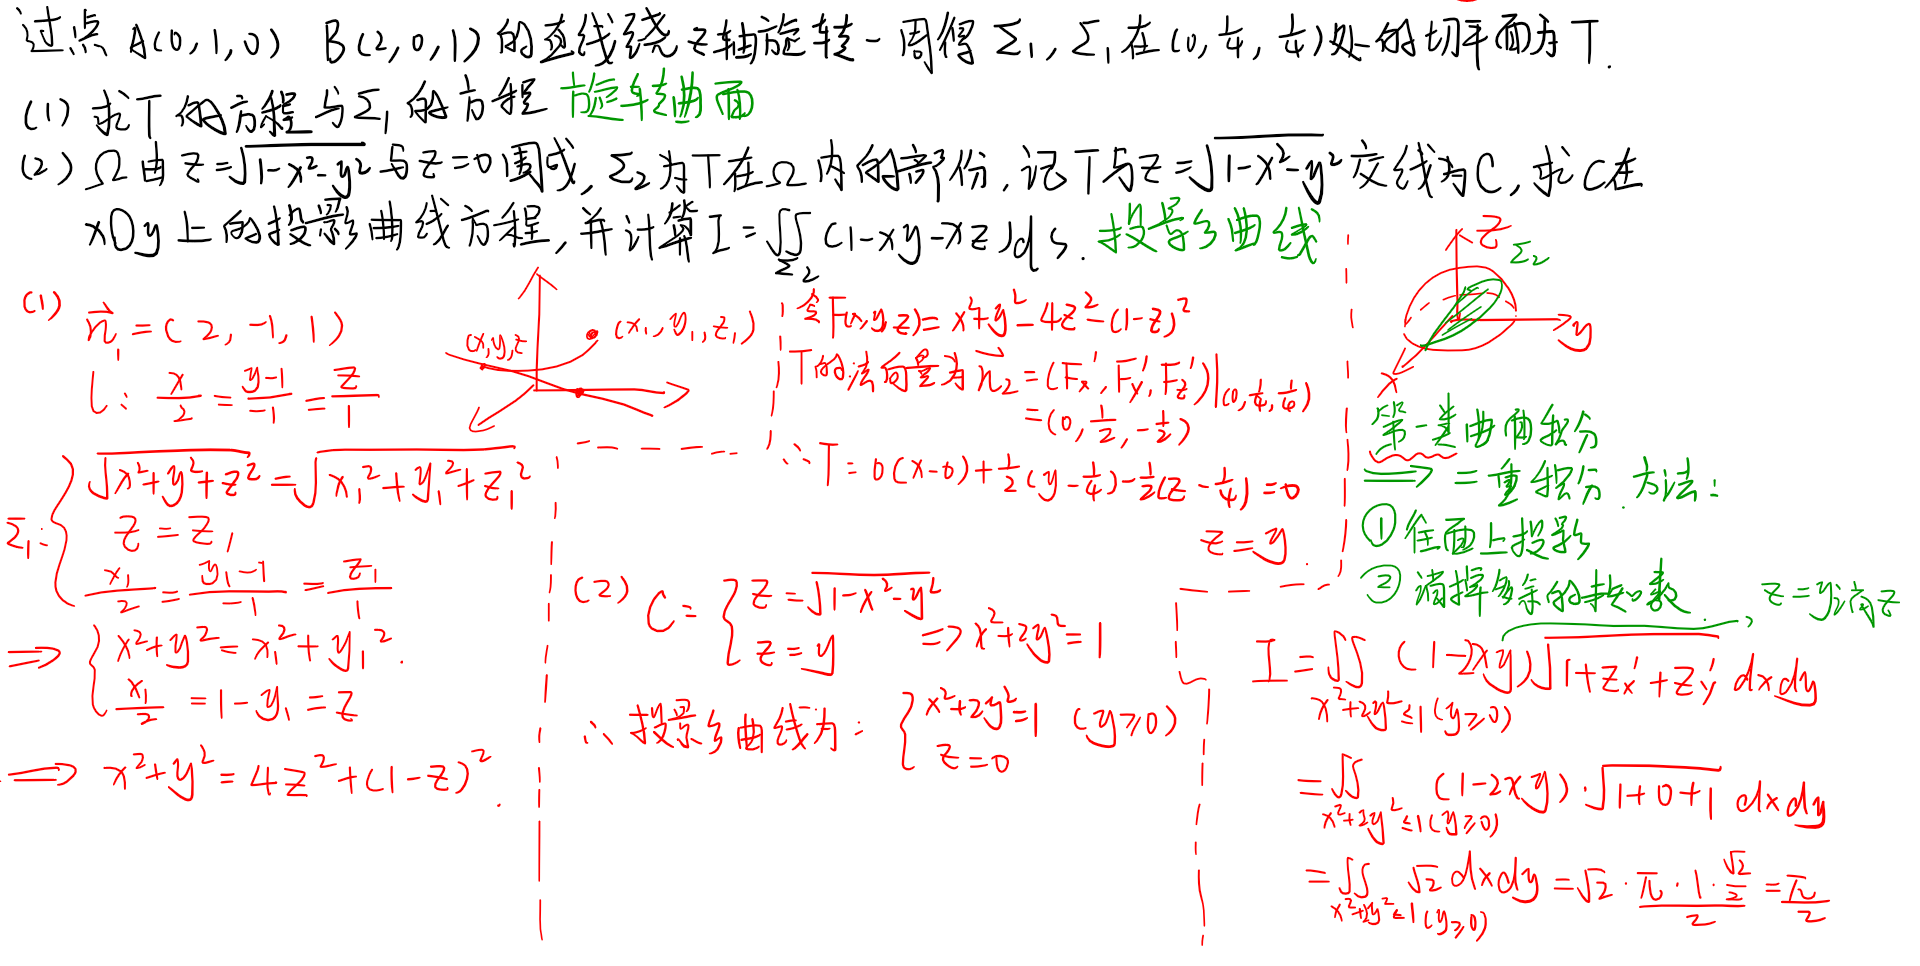 过点 A(0,1,0) B(2,0,1)的直线绕z轴旋转一周得 Σ₁, Σ₁在(0,¼,¼)处的切平面为T.
(1) 求T的方程与Σ₁的方程 旋转曲面
(2) Ω由z=√(1-x²-y²)与z=0围成, Σ₂为T在Ω内的部份, 记T与z=√(1-x²-y²)交线为C, 求C在
xOy上的投影曲线方程, 并计算I=∬_Σ₂ (1-xy-xz)ds. 投影曲线
(1) n₁=(2,-1,1)
l: x/2=(y-1)/-1=z/1
(x,y,z
(x₁,y₁,z₁)
Σ₁: { √(x²+y²+z²)=√(x₁²+y₁²+z₁²)
z=z₁
x₁/2=(y₁-1)/-1=z₁/1
⇒ { x²+y²=x₁²+y₁².
x₁/2=1-y₁=z
⇒ x²+y²=4z²+(1-z)².
令F(x,y,z)=x²+y²-4z²-(1-z)²
T的法向量为n₂=(Fx′,Fy′,Fz′)|(0,¼,¼)
=(0,½,-½)
∴T=0(x-0)+½(y-¼)-½(z-¼)=0
z=y
(2) C={ z=√(1-x²-y²)
z=y
⇒x²+2y²=1
∴投影曲线为: { x²+2y²=1 (y≥0)
z=0
z
Σ₂
y
x
第一类曲面积分
⇒ 二重积分. 方法:
①往面上投影
②消掉多余的未知数, z=y消z
I=∬_{x²+2y²≤1(y≥0)} (1-2xy)√(1+z′x+z′y) dxdy
=∬_{x²+2y²≤1(y≥0)} (1-2xy)·√(1+0+1) dxdy
=∬_{x²+2y²≤1(y≥0)} √2 dxdy=√2·(π·1·√2/2)/2=π/2